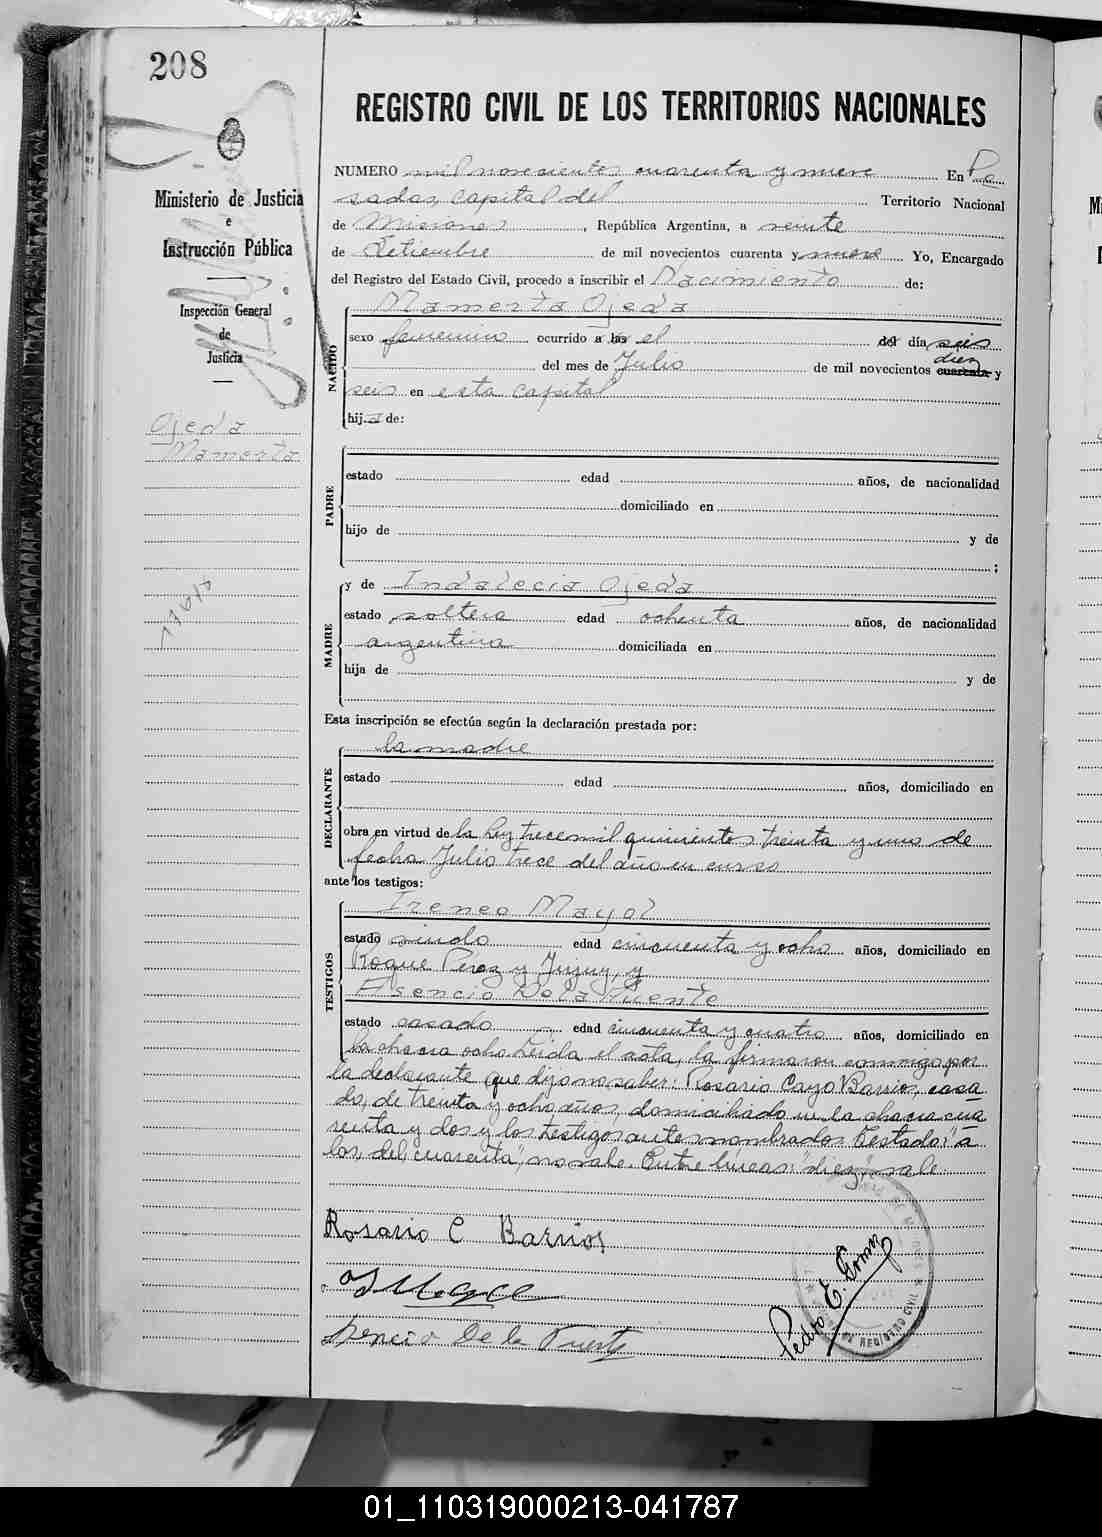 208
REGISTRO CIVIL DE LOS TERRITORIOS NACIONALES
Ministerio de Justicia
e
Instrucción Pública
Inspección General
de
Justicia
Ojeda
Mamerta
NUMERO mil novecientos cuarenta y nueve En Po
sadas, capital del Territorio Nacional
de Misiones, República Argentina, a veinte
de Setiembre de mil novecientos cuarenta y nueve Yo, Encargado
del Registro del Estado Civil, procedo a inscribir el Nacimiento de:
Mamerta Ojeda
NACIDO
sexo femenino ocurrido a las el del día seis
diez
del mes de Julio de mil novecientos cuarenta y
seis en esta capital
hija de:
PADRE
estado edad años, de nacionalidad
domiciliado en
hijo de y de
;
MADRE
y de Indalecia Ojeda
estado soltera edad ochenta años, de nacionalidad
argentina domiciliada en
hija de y de
Esta inscripción se efectúa según la declaración prestada por:
DECLARANTE
la madre
estado edad años, domiciliado en
obra en virtud de la Ley trece mil quinientos treinta y uno de
fecha Julio trece del año en curso
ante los testigos:
TESTIGOS
Ireneo Mayol
estado viudo edad cincuenta y ocho años, domiciliado en
Roque Perez y Jujuy, y
Asencio De la Fuente
estado casado edad cincuenta y cuatro años, domiciliado en
la chacra ocho. Leida el acta, la firmaron conmigo por
la declarante que dijo no saber: Rosario Cayo Barrios, casa
do, de treinta y ocho años, domiciliado en la chacra cua
renta y dos y los testigos antes nombrados. Testado: "a
las, del, cuarenta", no vale. Entre lineas: "diez", vale.
Rosario C Barrios
Asencio De la Fuente
Pedro E. Gomez
DE REGISTRO CIVIL
01_110319000213-041787